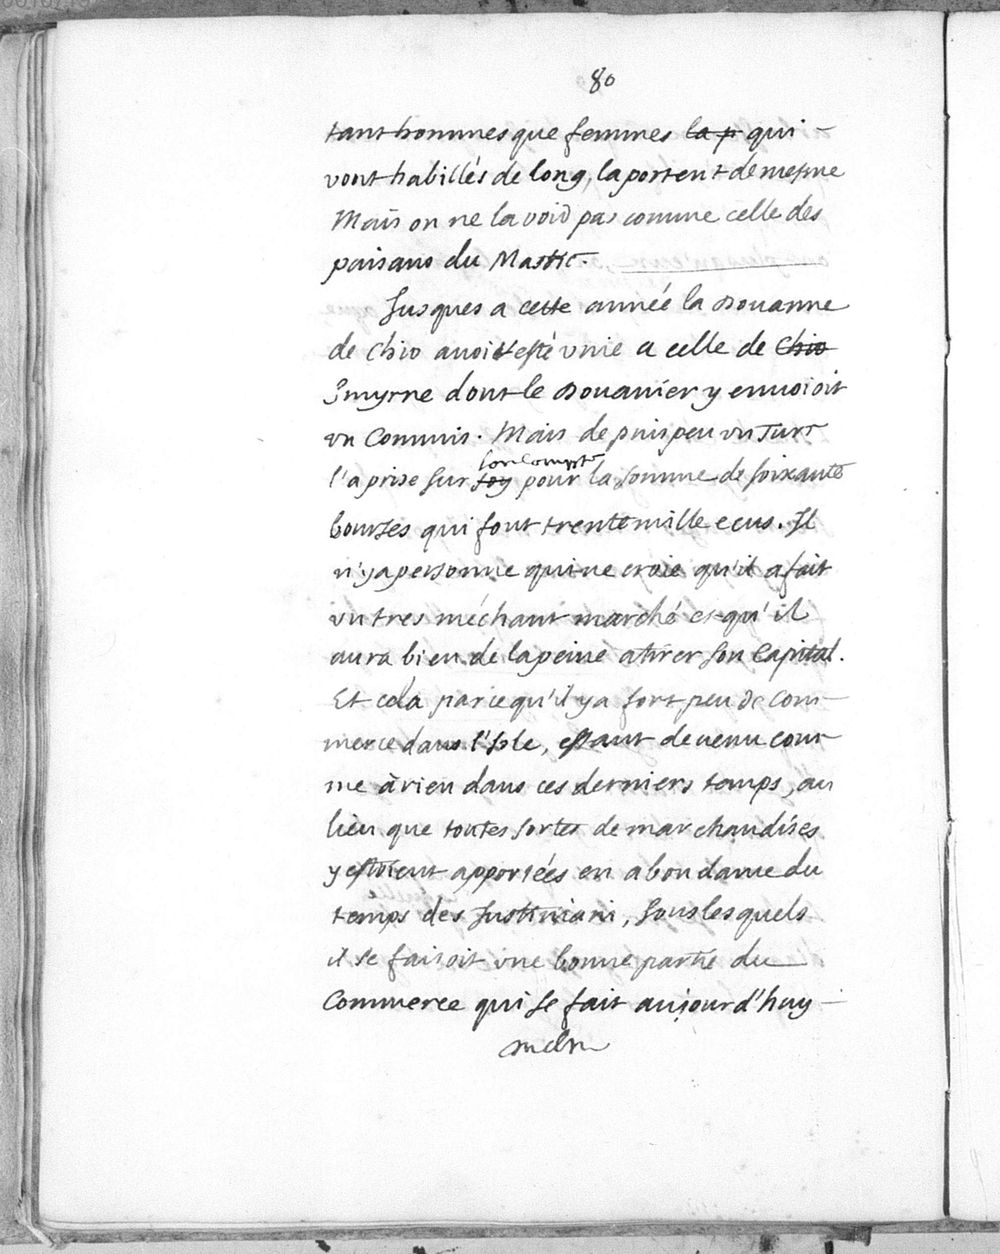 80
tant hommes que femmes la p qui
vont habillés de long, la portent de mesme
Mais on ne la void pas comme celle des
paisans du Mastic.
Jusques a cette année la Douanne
de Chio avoit esté vnie a celle de Chio
Smyrne dont le Douanier y envoioit
vn Commis. Mais depuis peu vn Turc
son compte
l'a prise sur soy pour la somme de soixante
bourses qui font trente mille ecus. Il
n'y a personne qui ne croie qu'il a fait
vn tres méchant marché et qu'il
aura bien de la peine a tirer son Capital.
Et cela parce qu'il y a fort peu de com-
merce dans l'Isle, estant devenu com-
me à rien dans ces derniers temps, au
lieu que toutes sortes de marchandises
y estoient apportées en abondance du
temps des Justiniani, sous lesquels
il se faisoit vne bonne partie du
Commerce qui se fait aujourd'huy